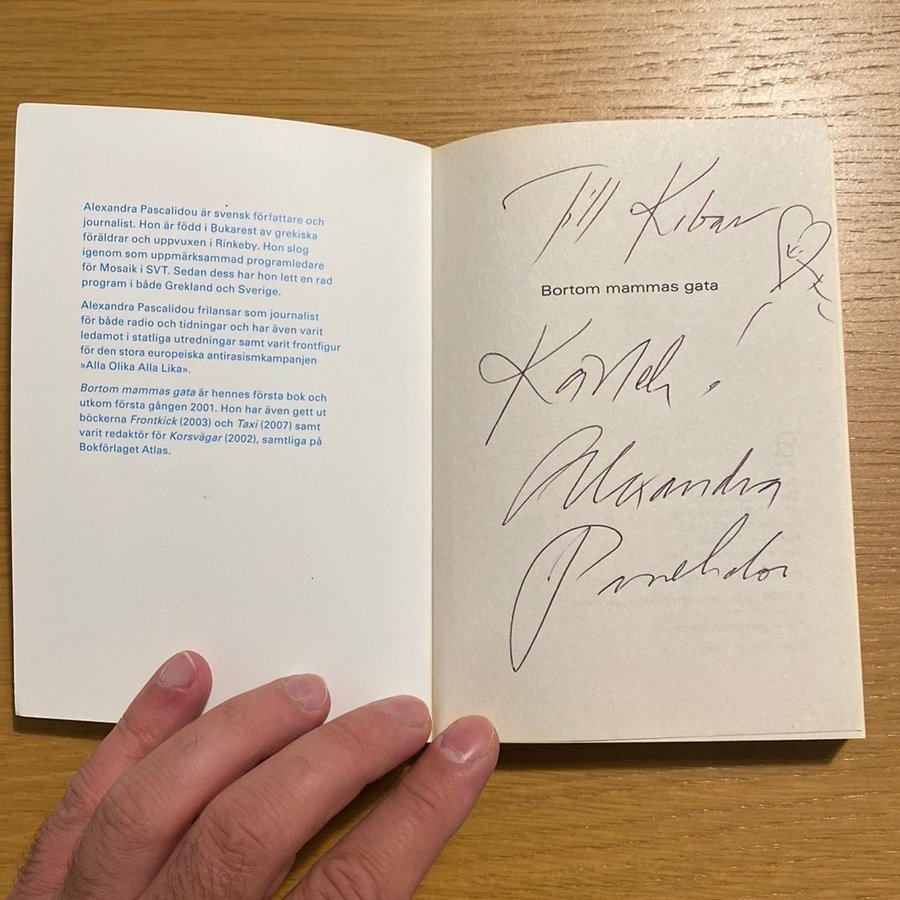 Alexandra Pascalidou är svensk författare och
journalist. Hon är född i Bukarest av grekiska
föräldrar och uppvuxen i Rinkeby. Hon slog
igenom som uppmärksammad programledare
för Mosaik i SVT. Sedan dess har hon lett en rad
program i både Grekland och Sverige.
Alexandra Pascalidou frilansar som journalist
för både radio och tidningar och har även varit
ledamot i statliga utredningar samt varit frontfigur
för den stora europeiska antirasismkampanjen
»Alla Olika Alla Lika».
Bortom mammas gata är hennes första bok och
utkom första gången 2001. Hon har även gett ut
böckerna Frontkick (2003) och Taxi (2007) samt
varit redaktör för Korsvägar (2002), samtliga på
Bokförlaget Atlas.
Till Kibar
Bortom mammas gata
Kärlek!
Alexandra